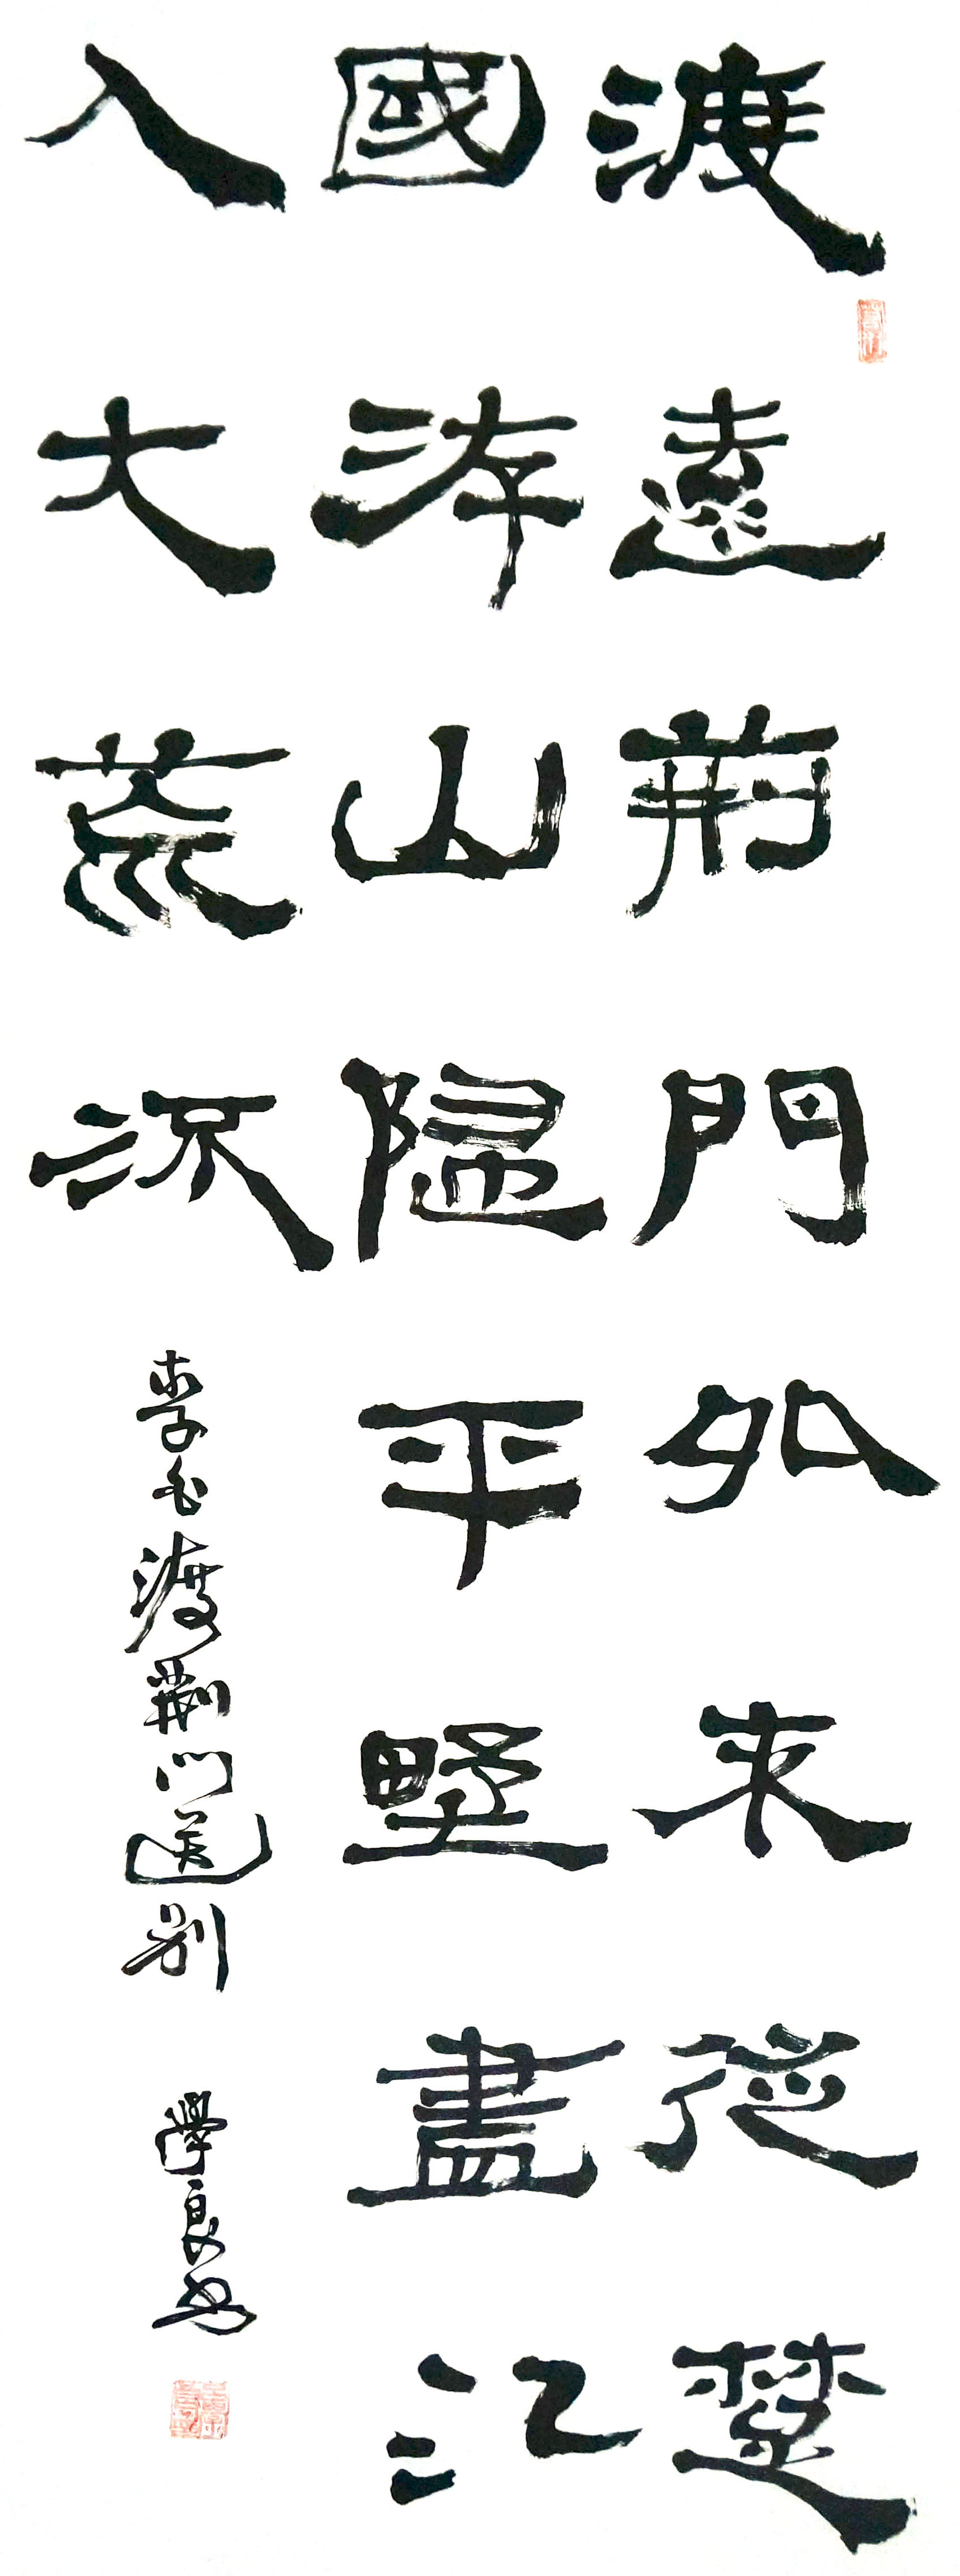 渡遠荆門外來從楚
國游山隨平野盡江
入大荒流
李白渡荆門送別
學良書